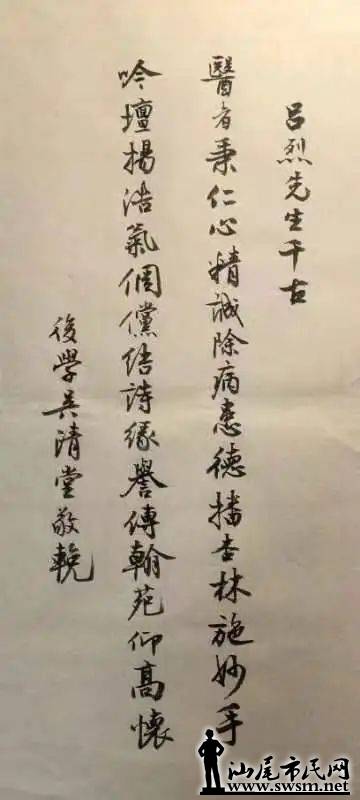 吕烈先生千古
醫者秉仁心精誠除病患德播杏林施妙手
吟壇揚浩氣倜儻结詩缘譽傳翰苑仰高懷
後學吴清堂敬輓
汕尾市民网
www.swsm.net